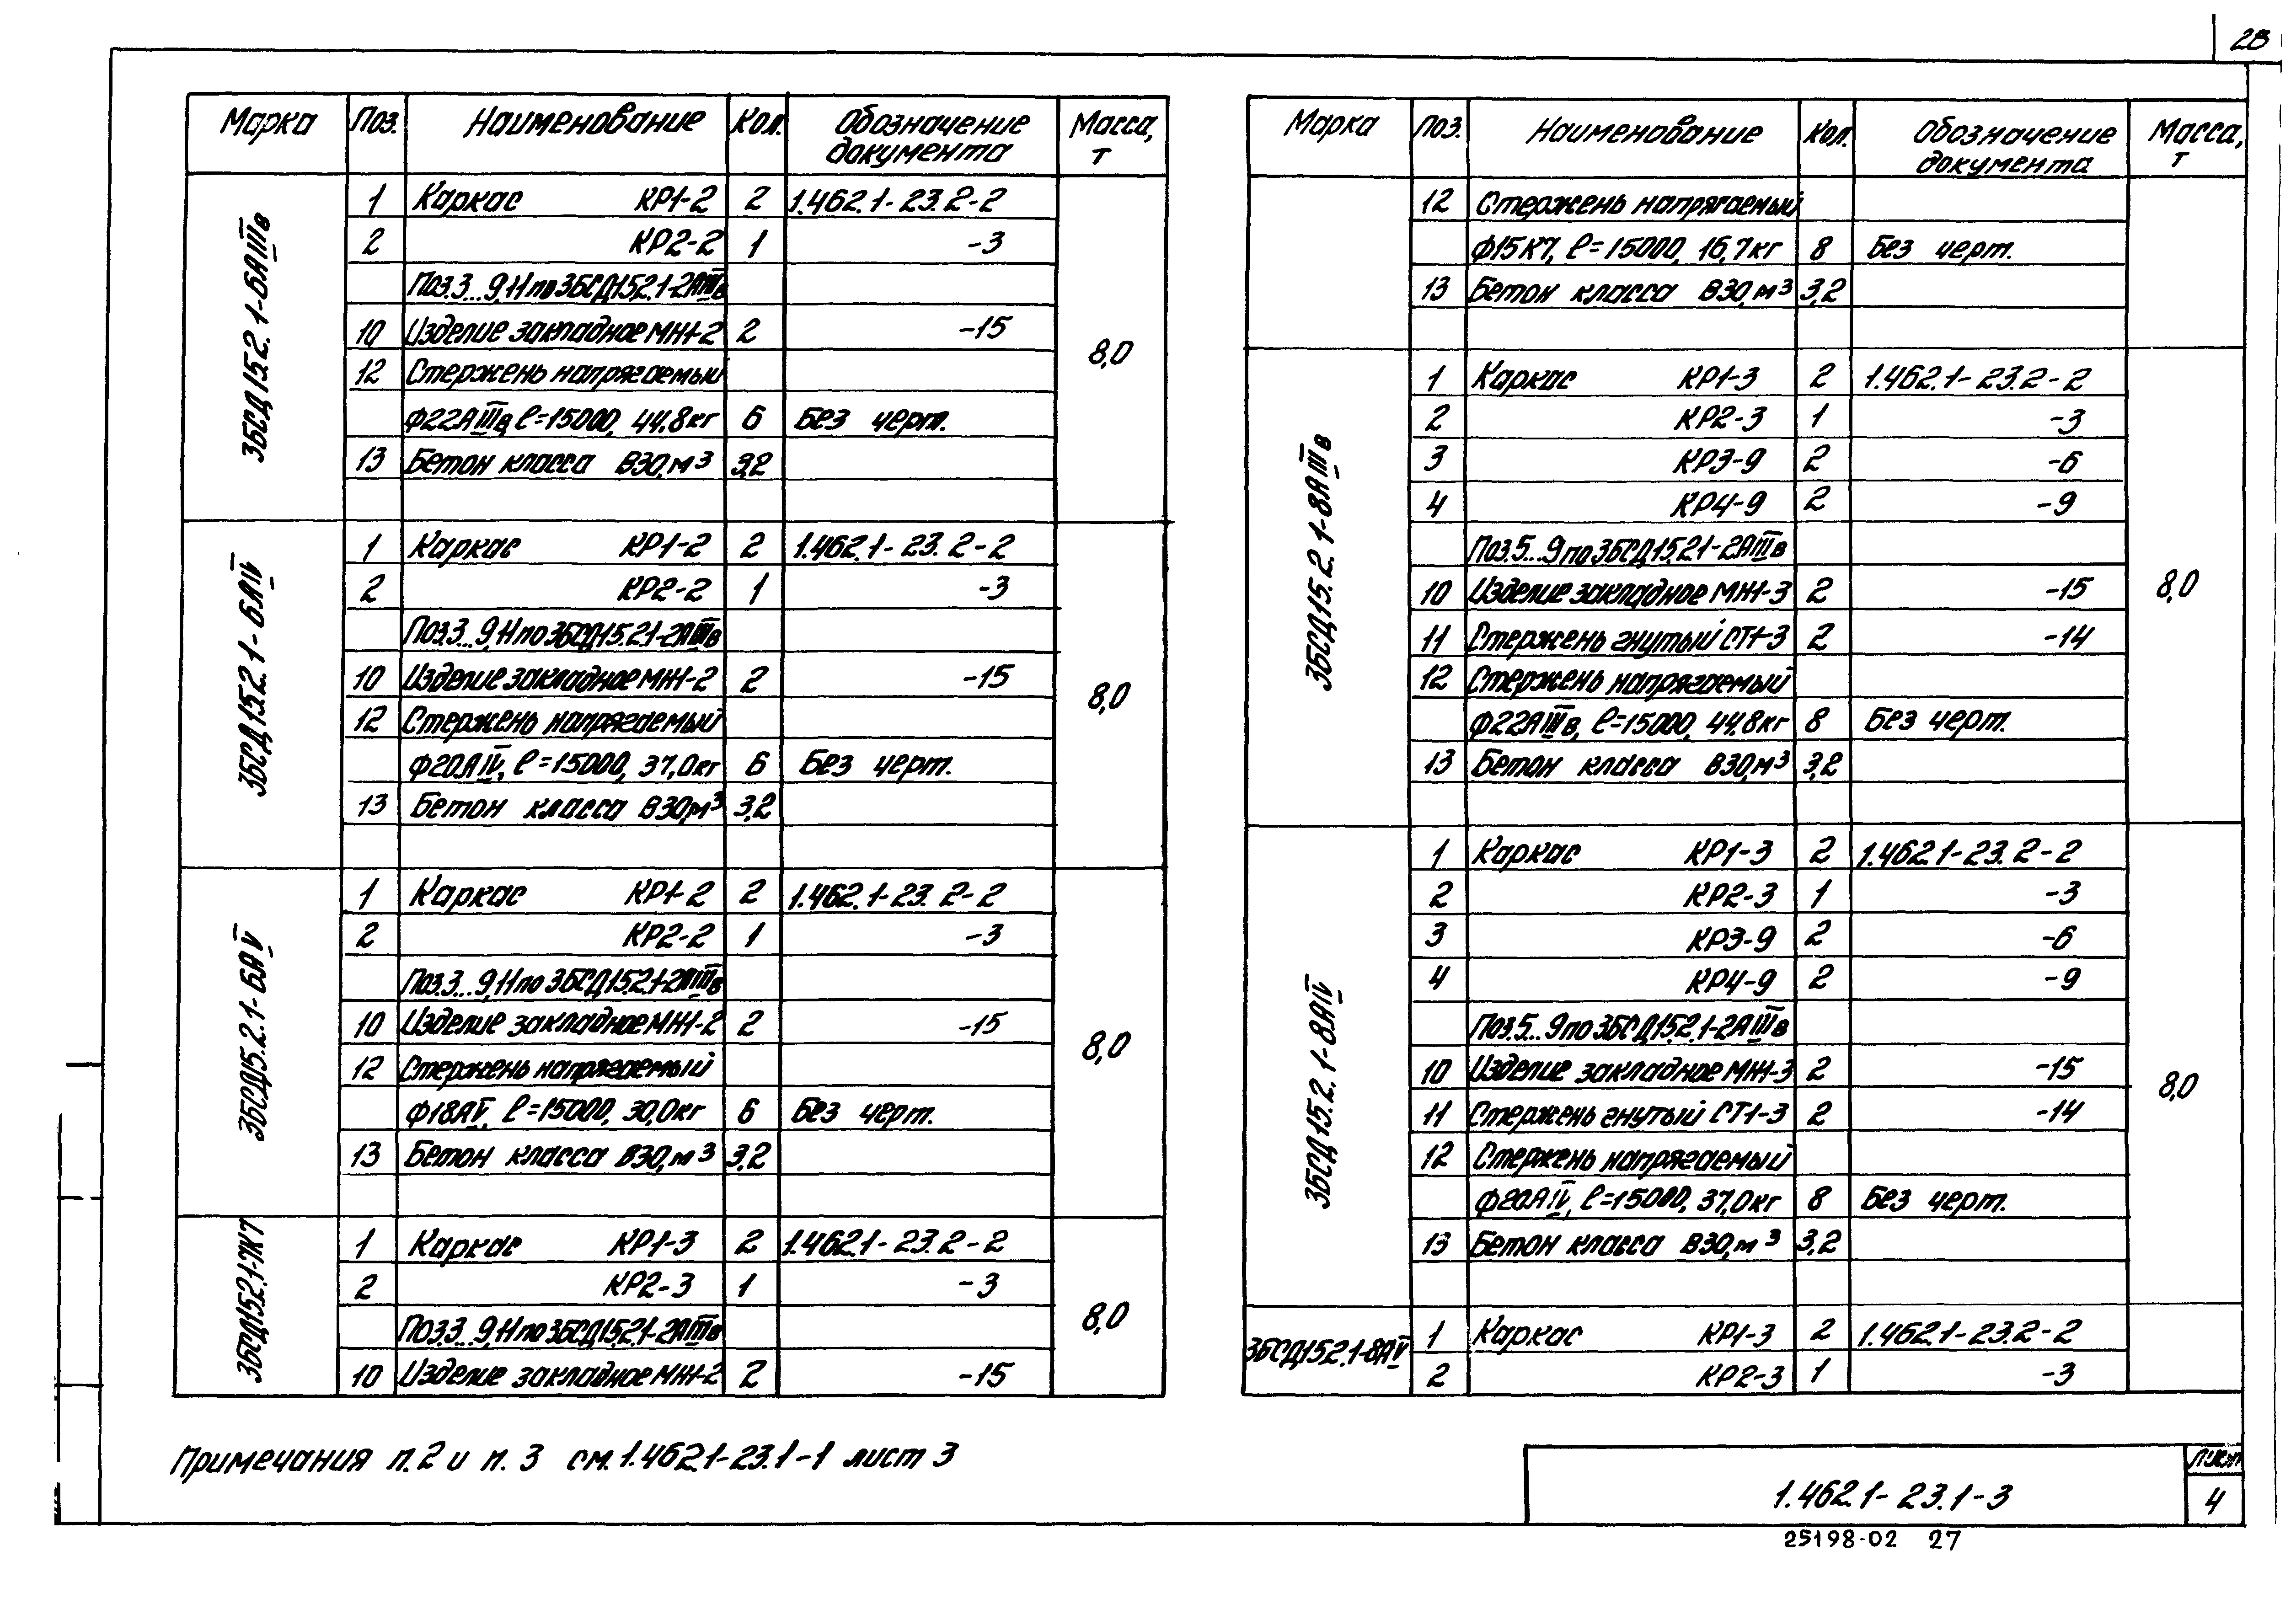 28
Марка Поз. Наименование Кол. Обозначение документа Масса, т
3БСД15.2.1-6АIIIв
1 Каркас КР1-2 2 1.462.1-23.2-2
2 КР2-2 1 -3
Поз.3...9,11 по 3БСД15.2.1-2АIIIв
10 Изделие закладное МН1-2 2 -15
8,0
12 Стержень напрягаемый
Ф22АIIIв, ℓ=15000, 44.8кг 6 Без черт.
13 Бетон класса В30, м³ 3,2
3БСД15.2.1-6АIV
1 Каркас КР1-2 2 1.462.1-23.2-2
2 КР2-2 1 -3
Поз.3...9,11 по 3БСД15.2.1-2АIIIв
10 Изделие закладное МН1-2 2 -15
8,0
12 Стержень напрягаемый
Ф20АIV, ℓ=15000, 37,0кг 6 Без черт.
13 Бетон класса В30, м³ 3,2
3БСД15.2.1-6АV
1 Каркас КР1-2 2 1.462.1-23.2-2
2 КР2-2 1 -3
Поз.3...9,11 по 3БСД15.2.1-2АIIIв
10 Изделие закладное МН1-2 2 -15
8,0
12 Стержень напрягаемый
Ф18АV, ℓ=15000, 30,0кг 6 Без черт.
13 Бетон класса В30, м³ 3,2
3БСД15.2.1-7К7
1 Каркас КР1-3 2 1.462.1-23.2-2
2 КР2-3 1 -3
8,0
Поз.3...9,11 по 3БСД15.2.1-2АIIIв
10 Изделие закладное МН1-2 2 -15
Марка Поз. Наименование Кол. Обозначение документа Масса, т
12 Стержень напрягаемый
Ф15К7, ℓ=15000, 16,7кг 8 Без черт.
13 Бетон класса В30, м³ 3,2
3БСД15.2.1-8АIIIв
1 Каркас КР1-3 2 1.462.1-23.2-2
2 КР2-3 1 -3
3 КР3-9 2 -6
4 КР4-9 2 -9
Поз.5...9 по 3БСД15.2.1-2АIIIв
10 Изделие закладное МН1-3 2 -15
8,0
11 Стержень гнутый СТ1-3 2 -14
12 Стержень напрягаемый
Ф22АIIIв, ℓ=15000, 44.8кг 8 Без черт.
13 Бетон класса В30, м³ 3,2
3БСД15.2.1-8АIV
1 Каркас КР1-3 2 1.462.1-23.2-2
2 КР2-3 1 -3
3 КР3-9 2 -6
4 КР4-9 2 -9
Поз.5...9 по 3БСД15.2.1-2АIIIв
10 Изделие закладное МН1-3 2 -15
8,0
11 Стержень гнутый СТ1-3 2 -14
12 Стержень напрягаемый
Ф20АIV, ℓ=15000, 37,0кг 8 Без черт.
13 Бетон класса В30, м³ 3,2
3БСД15.2.1-8АV
1 Каркас КР1-3 2 1.462.1-23.2-2
2 КР2-3 1 -3
Примечания п.2 и п.3 см. 1.462.1-23.1-1 лист 3
1.462.1-23.1-3
Лист
4
25198-02 27